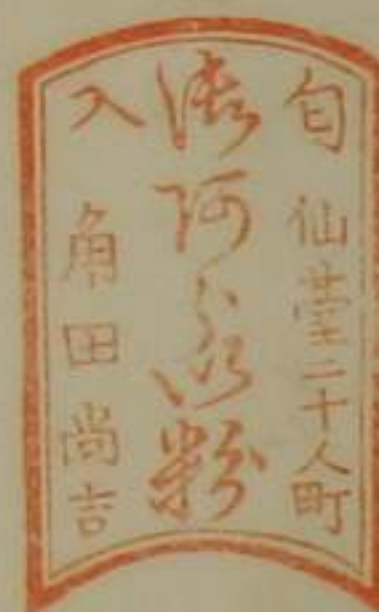 匂 仙臺二十人町
御阿らい粉
入 角田尚吉